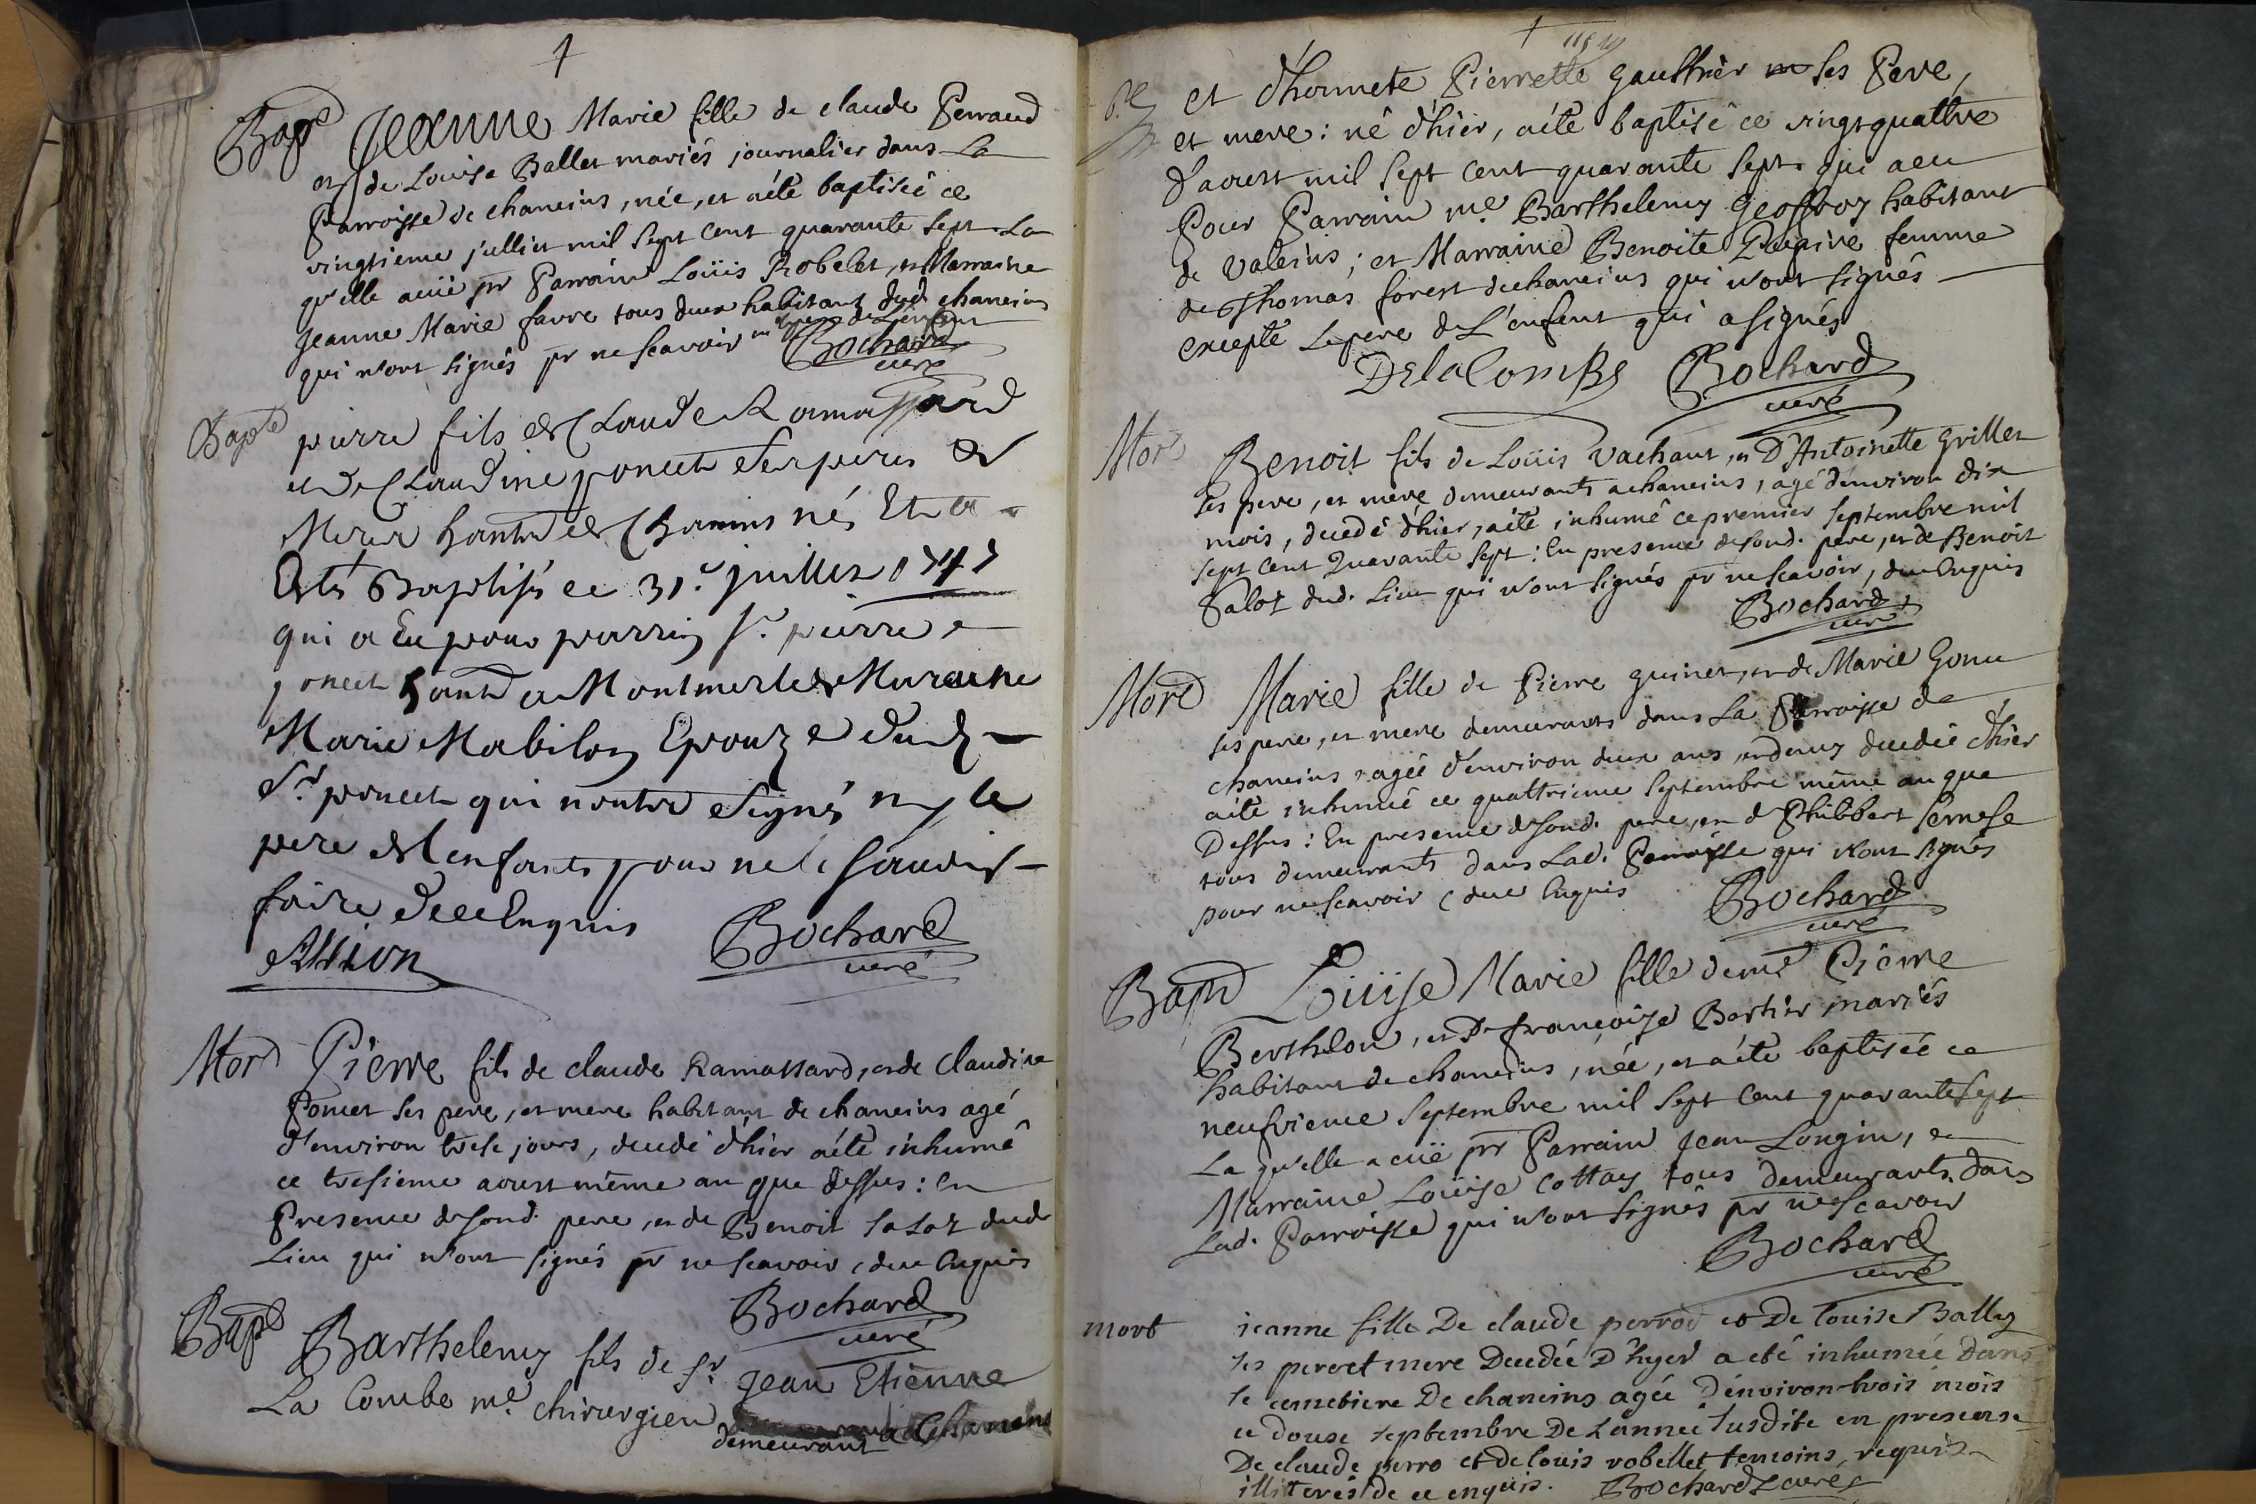 Bapt. Jeanne Marie fille de claude Perraud
et de Louise Ballet mariés journalier dans La
Parroisse de chaneins, née, et aété baptiseé ce
vingtieme jullier mil sept cent quarante sept. La
qu'elle aeüé pr Parrain Loüis Robelet, et Marraine
Jeanne Marie favre tous deux habitant dud chaneins
qui n'ont signés pr ne scavoir ni le pere de L'enfent
Bochard
curé
Bapte
pierre fils de Claude Ramassard
et de Claudine poncet Ses peres et
Mere de Chanins nés Et a
Esté Baptisé ce 31.e juillet 1747
qui a Eu pour parrin sr. pierre
poncet a Montmerle et Maraine
Marie Mabilon Epouze dud
Sr poncet qui nonts Signé ny le
pere de Lenfants pour ne le sauoir
faire de ce Enquis
Bochard
curé
Mort Pierre fils de claude Ramassard, et de claudine
Poncet ses pere, et mere habitant de chaneins agé
d'environ trese jours, decedé d'hier aété inhumé
ce tresieme aoust même an que dessus: en
Presence de sond. pere, et de Benoit Salot dud
Lieu qui n'ont signés pr ne scavoir, de ce enquis
Bochard
curé
Bapt Barthelemy fils de sr. Jean Etienne
La Combe me. chirurgien
demeurant a Chaneins
et d'honnete Pierrette Gauthier ses Pere,
et mere: né d'hier, aété baptisé ce vingt quattre
d'aoust mil sept cent quarante sept. qui aeu
Pour Parrain me. Barthelemy Geoffroy habitant
de Valeins; et Marraine Benoite femme
de Thomas forest de chaneins qui n'ont signés
excepté Le pere de L'enfent qui a signés
DelaCombe Bochard
curé
Mort
Benoit fils de Loüis Vachant, et D'Antoinette Grillet
ses pere, et mere demeurants a chaneins, agé d'environ dix
mois, decedé d'hier, aété inhumé ce premier septembre mil
sept cent Quarante sept: En presence de sond. pere, et de Benoit
Salot dud. Lieu qui n'ont signés pr ne scavoir, de ce Enquis
Bochard
curé
Mort Marie fille de Pierre guinet, et de Marie Gonu
ses pere, et mere demeurants dans La Parroisse de
chaneins agée d'environ deux ans, et demy decedée d'hier
aété inhumée ce quattrieme septembre même an que
Dessus: En presence de sond. pere, et de Philibbert
tous demeurants dans Lad. Parroisse qui n'ont signés
pour ne scavoir, de ce Enquis
Bochard
curé
Bapt Loüise Marie fille de me. Pierre
Berthelon, et De françoise Bertier mariés
habitant de chaneins, née, et aété baptiseé ce
neufvieme septembre mil sept cent quarante sept
La qu'elle a eüé pr Parrain Jean Longin, et
Marraine Loüise Cottay tous demeurants dans
Lad. Parroisse qui n'ont signés pr ne scavoir
Bochard
curé
mort jeanne fille De claude perrod et De Louise Ballay
ses pere et mere Decedée D'hyer a eté inhumée Dans
le cemetiere De chaneins agée D'environ trois mois
ce douse septembre De L'année susdite en presence
De claude perro et de Louis robellet temoins requis
illiterés de ce enquis. Bochard curé